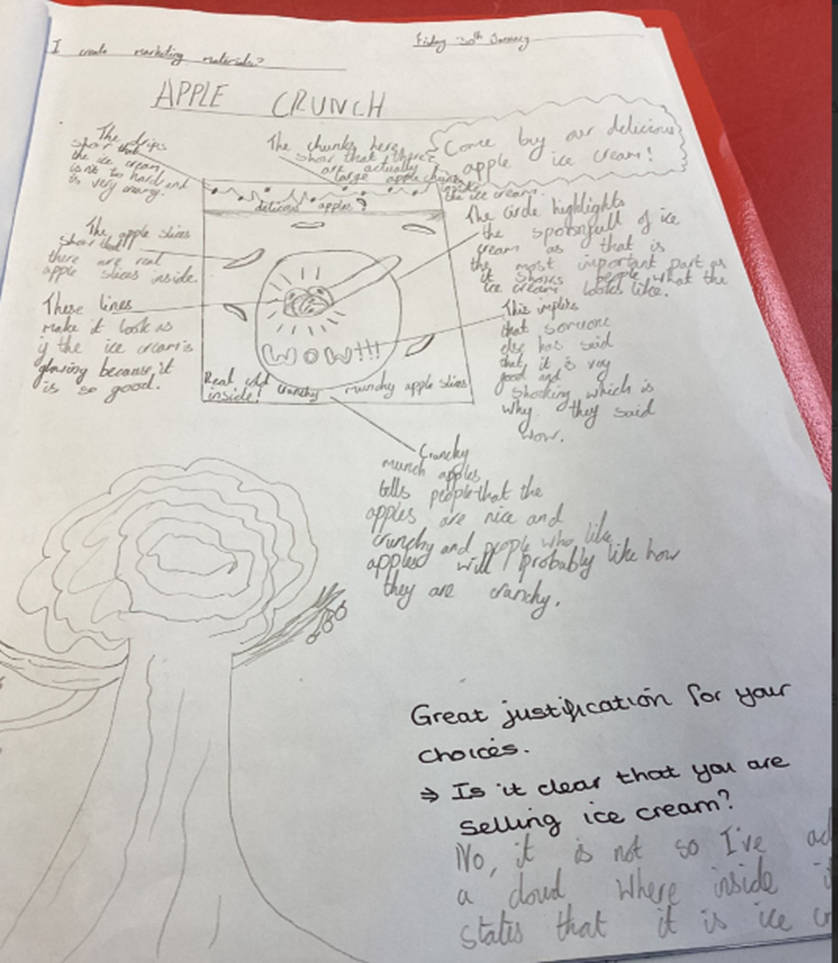 I create marketing materials?
Friday 30th January
APPLE CRUNCH
Come buy our delicious
apple ice cream!
The drips
show that
the ice cream
isn't too hard and
is very creamy.
The chunks here
show that there
are actually
large apple chunks
inside
the ice cream.
delicious apples
The apple slices
show that
there are real
apple slices inside.
The circle highlights
the spoonfull of ice
cream as that is
the most important part as
it shows people what the
ice cream looks like.
These lines
make it look as
if the ice cream is
glowing because it
is so good.
WOW!!!
Real crunchy munchy apple slices
inside!
This implies
that someone
else has said
that it is very
good and
shocking which is
why they said
wow.
Crunchy
munch apples
tells people that the
apples are nice and
crunchy and people who like
apples will probably like how
they are crunchy.
Great justification for your
choices.
⇒ Is it clear that you are
selling ice cream?
No, it is not so I've
a cloud where inside
states that it is ice